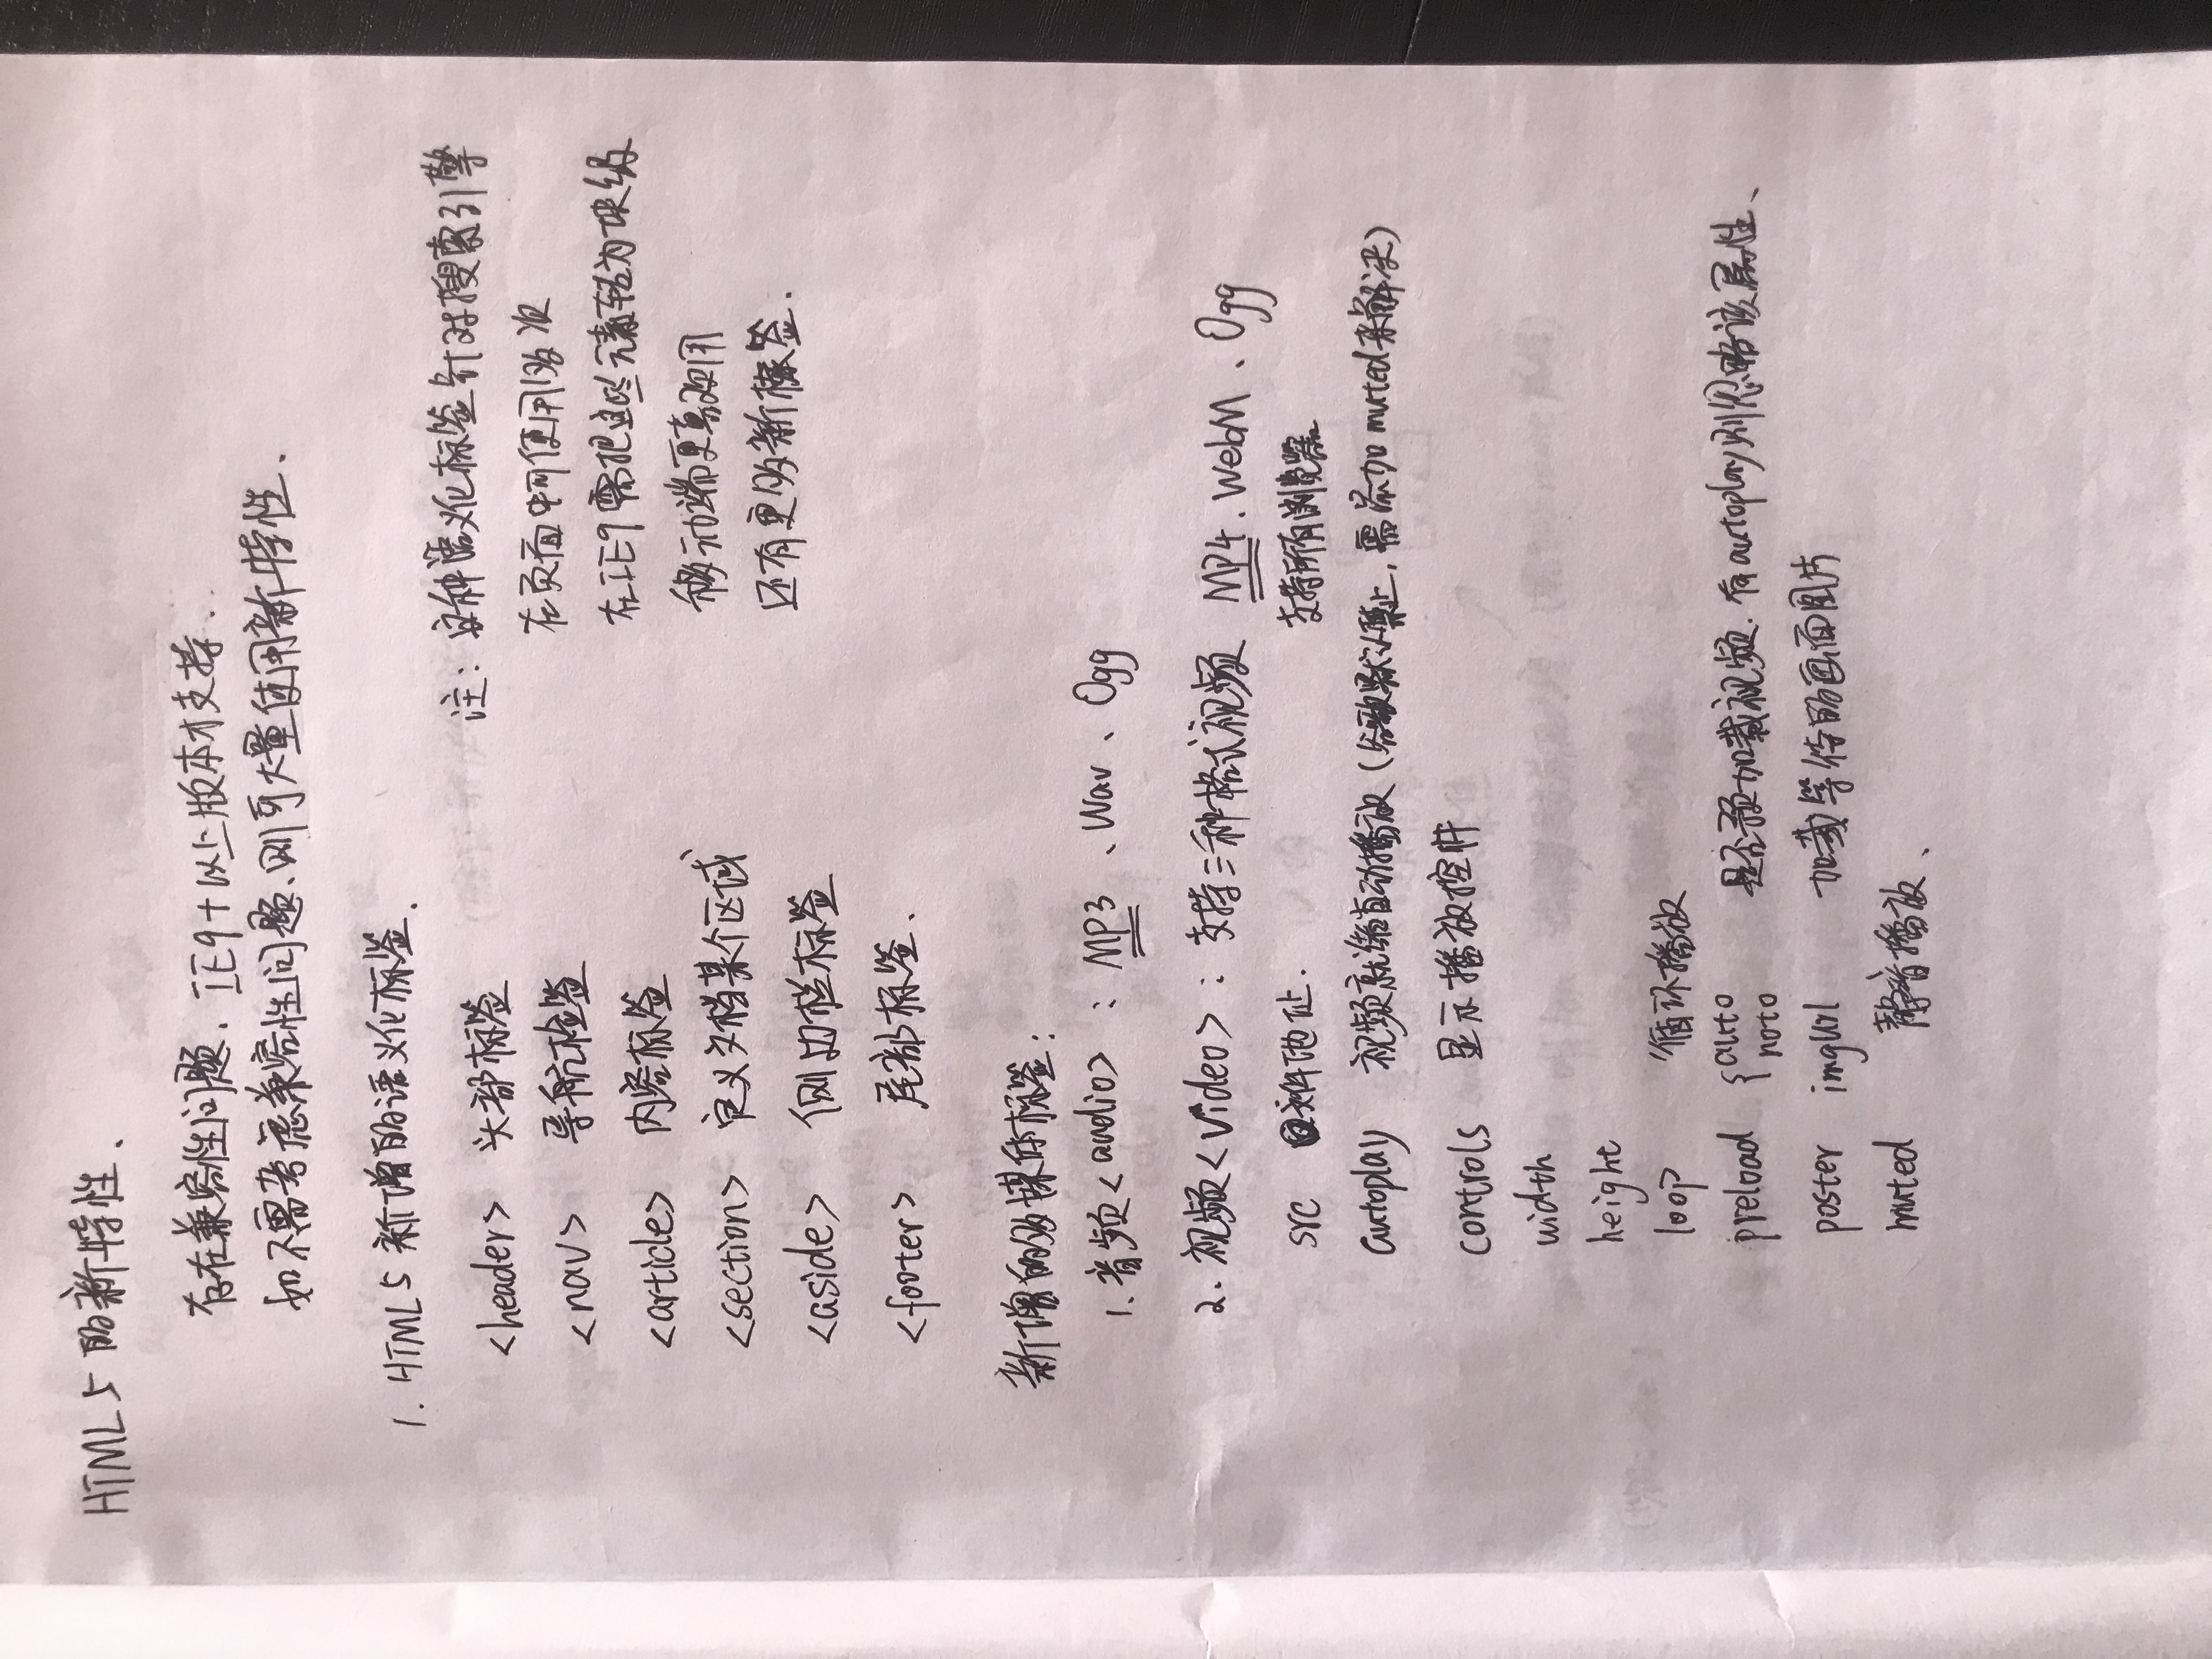 HTML5 的新特性、
存在兼容性问题、IE9+以上版本才支持.
如不需考虑兼容性问题、则可大量使用新特性.
1. HTML5 新增的语义化标签.
<header> 头部标签
<nav> 导航标签
<article> 内容标签
<section> 定义文档某个区域
<aside> 侧边栏标签
<footer> 尾部标签、
注：这种语义化标签针对搜索引擎
在页面中可使用多次
在IE9需把这些元素转为块级
移动端更喜欢用
还有更多新标签.
新增的多媒体标签：
1.音频<audio>：MP3、Wav、Ogg
2.视频<video>：支持三种格式视频 MP4、WebM、Ogg
支持所有浏览器
src 文件地址.
autoplay 视频就绪自动播放（谷歌默认禁止，需添加muted来解决）
controls 显示播放控件
width
height
loop 循环播放
preload { auto
noto
是否预加载视频.有autoplay则忽略该属性、
poster imgurl 加载等待的画面图片
muted 静音播放、